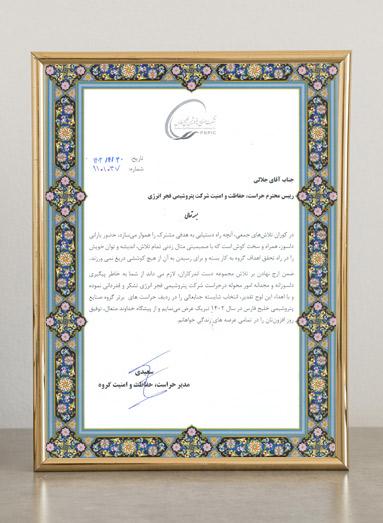 PGPIC
تاریخ: ۱۴۰۳/۰۴/۲۰
شماره:
جناب آقای جلالی
رییس محترم حراست، حفاظت و امنیت شرکت پتروشیمی فجر انرژی
در کوران تلاش‌های جمعی، آنچه راه دستیابی به هدفی مشترک را هموار می‌سازد، حضور یارانی
دلسوز، همراه و سخت کوش است که با صمیمیتی مثال زدنی تمام تلاش، اندیشه و توان خویش
را در راه تحقق اهداف گروه به کار بسته و برای رسیدن به آن از هیچ کوششی دریغ نمی ورزند.
ضمن ارج نهادن بر تلاش مجموعه دست اندرکاران، لازم می داند از شما به خاطر پیگیری
دلسوزانه و مجدانه امور محوله درحراست پتروشیمی فجر انرژی تشکر و قدردانی نموده
و با اهداء این لوح تقدیر، انتخاب شایسته جنابعالی را در ردیف حراست های برتر گروه صنایع
پتروشیمی خلیج فارس در سال ۱۴۰۲ تبریک عرض می‌نمایم و از پیشگاه خداوند متعال، توفیق
روز افزونتان را در تمامی عرصه های زندگی خواهانم.
سعیدی
مدیر حراست، حفاظت و امنیت گروه